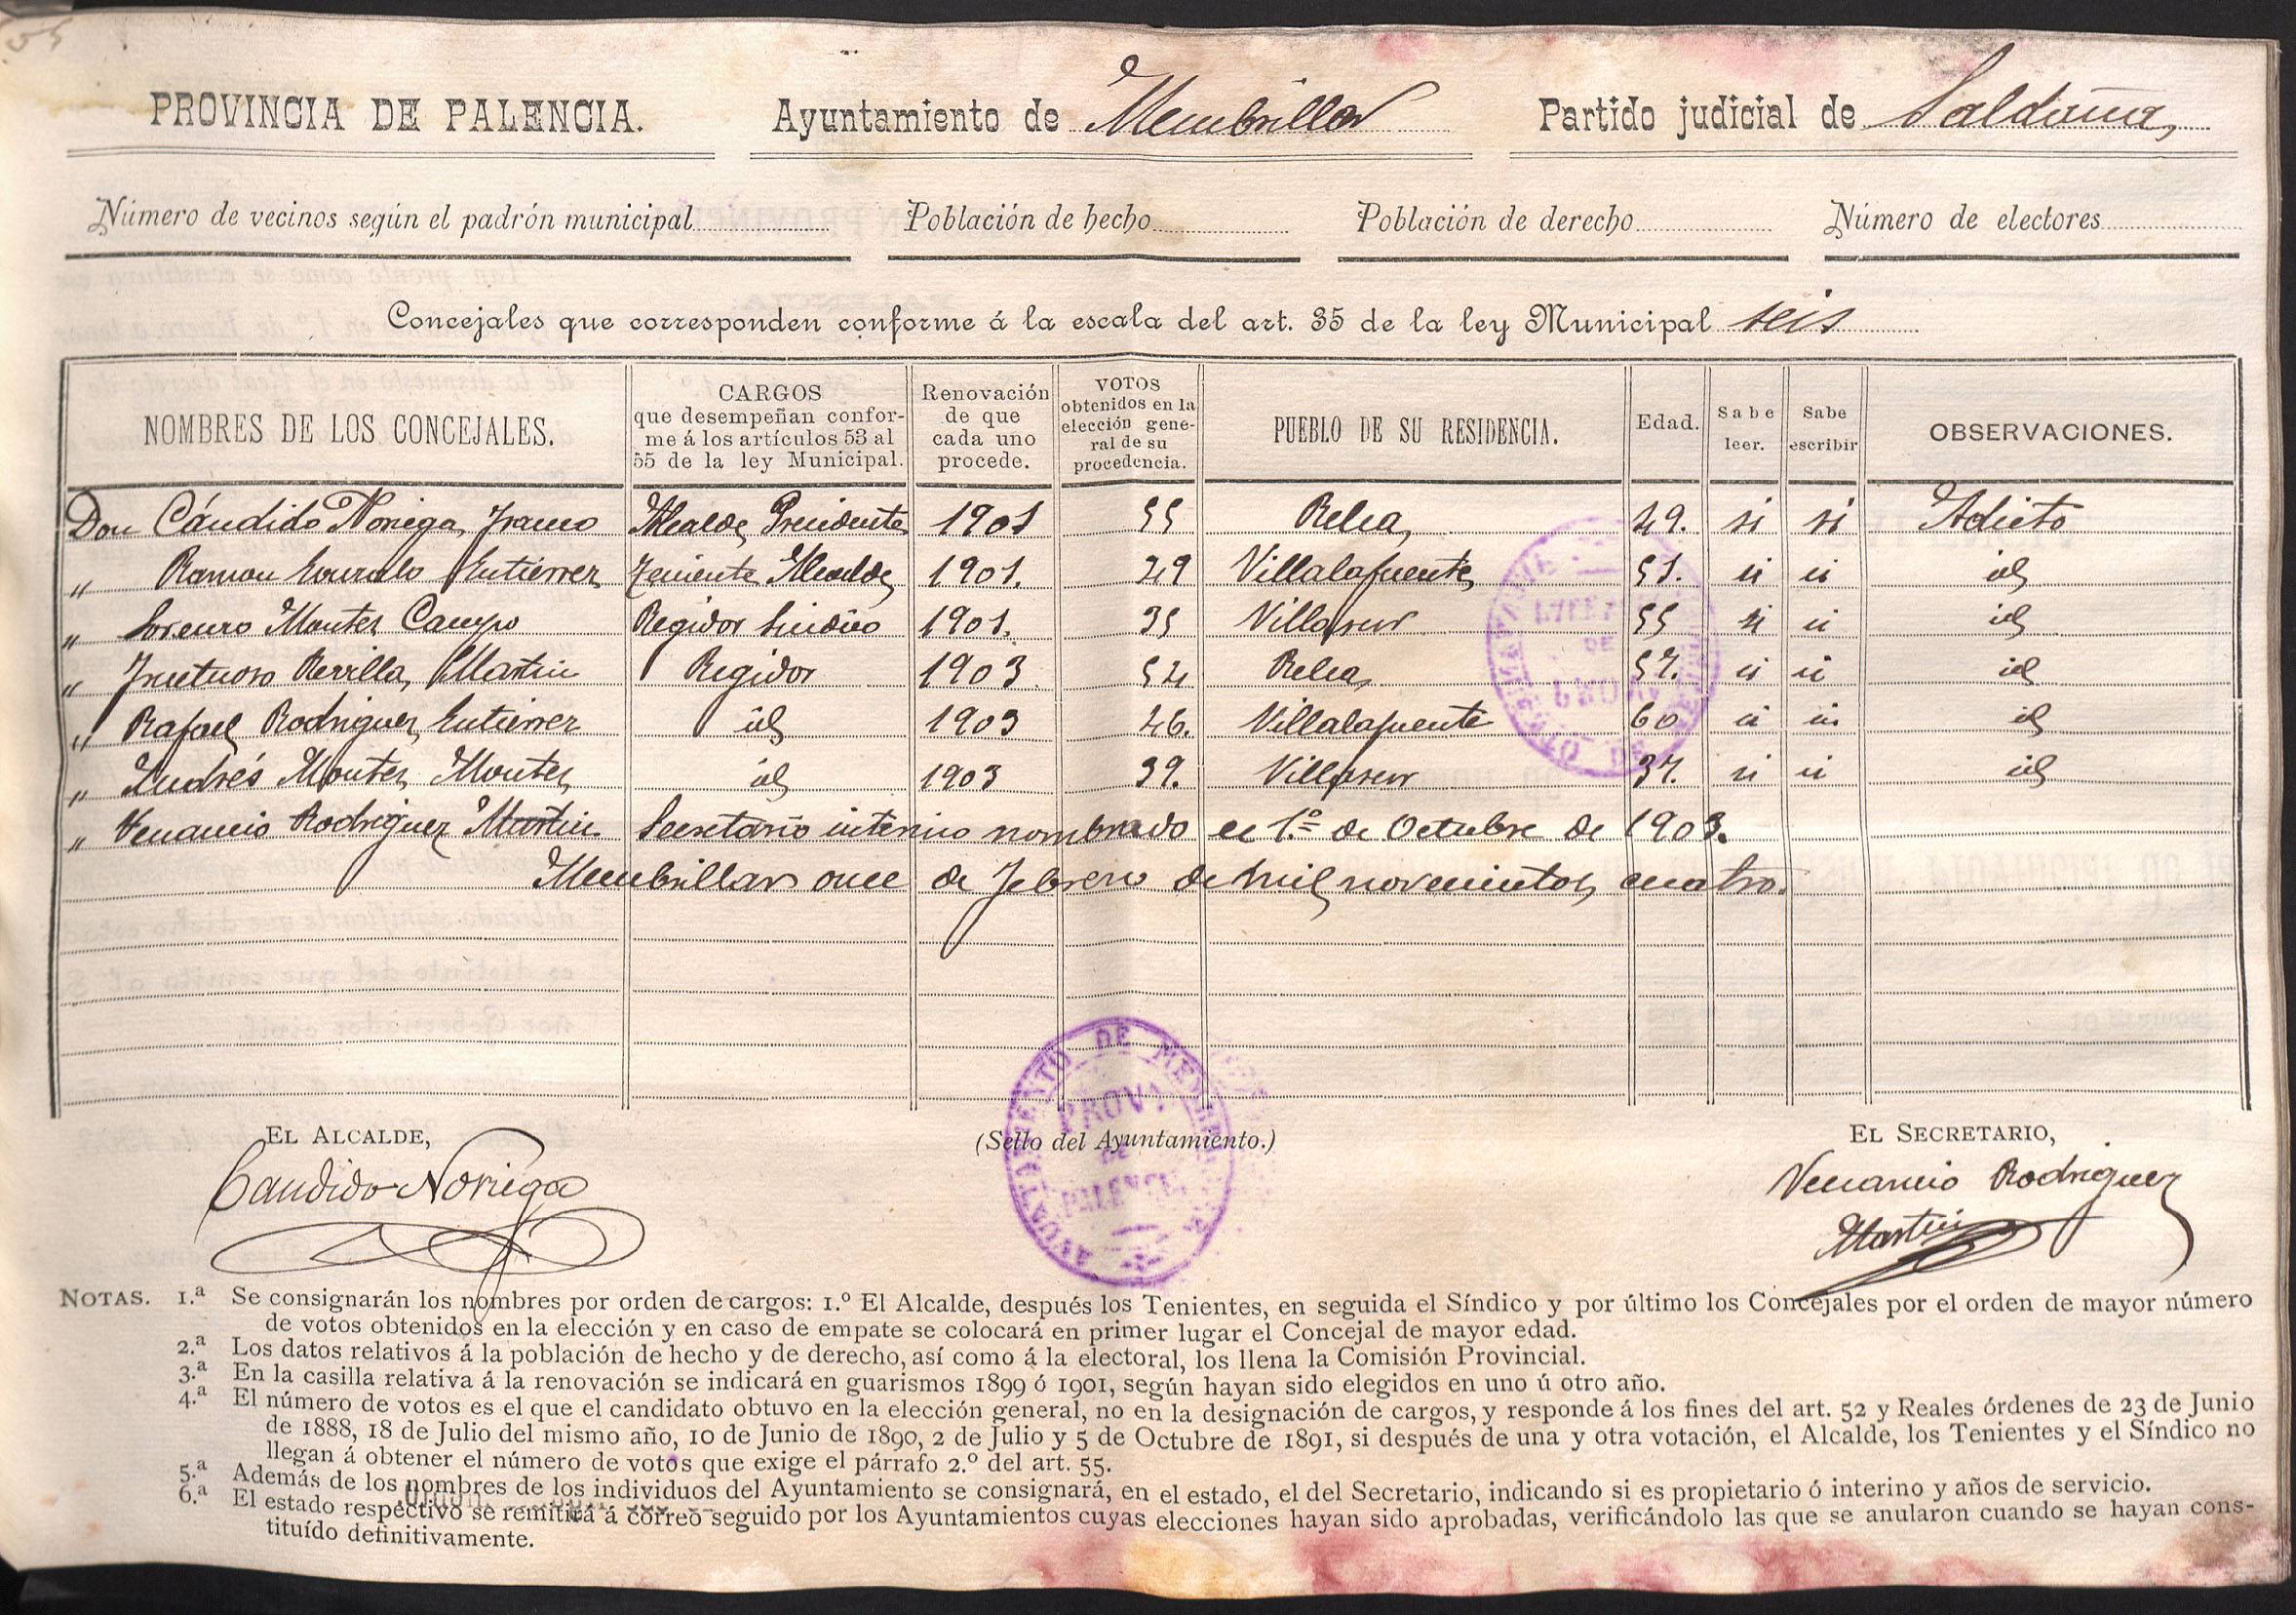 PROVINCIA DE PALENCIA. Ayuntamiento de Membrillar Partido judicial de Saldaña
Número de vecinos según el padrón municipal Población de hecho Población de derecho Número de electores
Concejales que corresponden conforme á la escala del art. 35 de la ley Municipal seis
NOMBRES DE LOS CONCEJALES. CARGOS que desempeñan conforme á los artículos 53 al 55 de la ley Municipal. Renovación de que cada uno procede. VOTOS obtenidos en la elección general de su procedencia. PUEBLO DE SU RESIDENCIA. Edad. Sabe leer. Sabe escribir OBSERVACIONES.
Don Cándido Noriega Franco Alcalde Presidente 1901 55 Relea 49. si si Adicto
" Ramon Gonzalo Gutierrez Teniente Alcalde 1901. 49 Villalafuente 51. si si id
" Lorenzo Montes Campo Regidor Sindico 1901. 35 Villasur 55 si si id
" Fructuoso Revilla Martin Regidor 1903 54 Relea 57. si si id
" Rafael Rodriguez Gutierrez id 1903 46. Villalafuente 60 si si id
" Andrés Montes Montes id 1903 39. Villasur 37. si si id
" Venancio Rodriguez Martin Secretario interino nombrado en 1.º de Octubre de 1903.
Membrillar once de Febrero de mil novecientos cuatro.
EL ALCALDE, (Sello del Ayuntamiento.) EL SECRETARIO,
Candido Noriega
Venancio Rodriguez
Martin
AYUNTAMIENTO DE MEMBRILLAR
PROV.ª
DE
PALENCIA
NOTAS. 1.ª Se consignarán los nombres por orden de cargos: 1.º El Alcalde, después los Tenientes, en seguida el Síndico y por último los Concejales por el orden de mayor número
de votos obtenidos en la elección y en caso de empate se colocará en primer lugar el Concejal de mayor edad.
2.ª Los datos relativos á la población de hecho y de derecho, así como á la electoral, los llena la Comisión Provincial.
3.ª En la casilla relativa á la renovación se indicará en guarismos 1899 ó 1901, según hayan sido elegidos en uno ú otro año.
4.ª El número de votos es el que el candidato obtuvo en la elección general, no en la designación de cargos, y responde á los fines del art. 52 y Reales órdenes de 23 de Junio
de 1888, 18 de Julio del mismo año, 10 de Junio de 1890, 2 de Julio y 5 de Octubre de 1891, si después de una y otra votación, el Alcalde, los Tenientes y el Síndico no
llegan á obtener el número de votos que exige el párrafo 2.º del art. 55.
5.ª Además de los nombres de los individuos del Ayuntamiento se consignará, en el estado, el del Secretario, indicando si es propietario ó interino y años de servicio.
6.ª El estado respectivo se remitirá á correo seguido por los Ayuntamientos cuyas elecciones hayan sido aprobadas, verificándolo las que se anularon cuando se hayan cons-
tituído definitivamente.